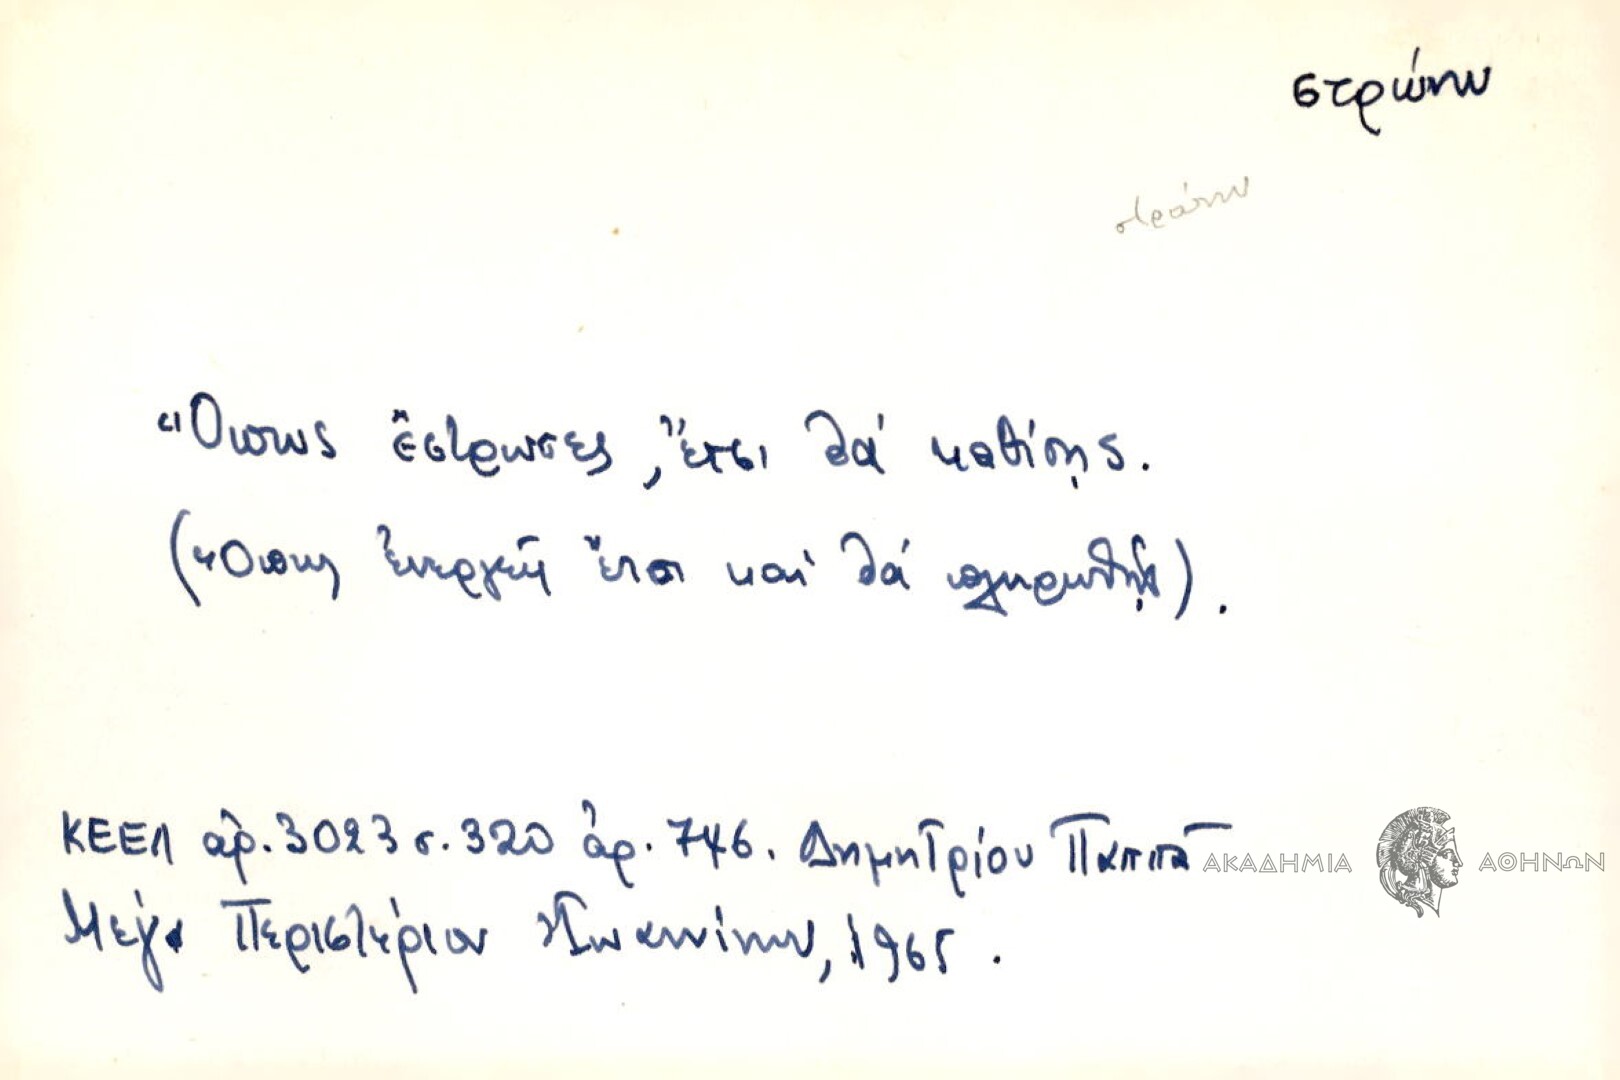 στρώνω
στρώνω
"Οπως ἔστρωσες, ἔτσι θά καθίσῃς.
(Ὅπως ἐνεργεῖς ἔτσι καί θά πληρωθῇς).
ΚΕΕΛ ἀρ. 3023 σ. 320 ἀρ. 746. Δημητρίου Παππᾶ
Μέγα Περιστέριον Ἰωαννίνων, 1965.
ΑΚΑΔΗΜΙΑ ΑΘΗΝΩΝ